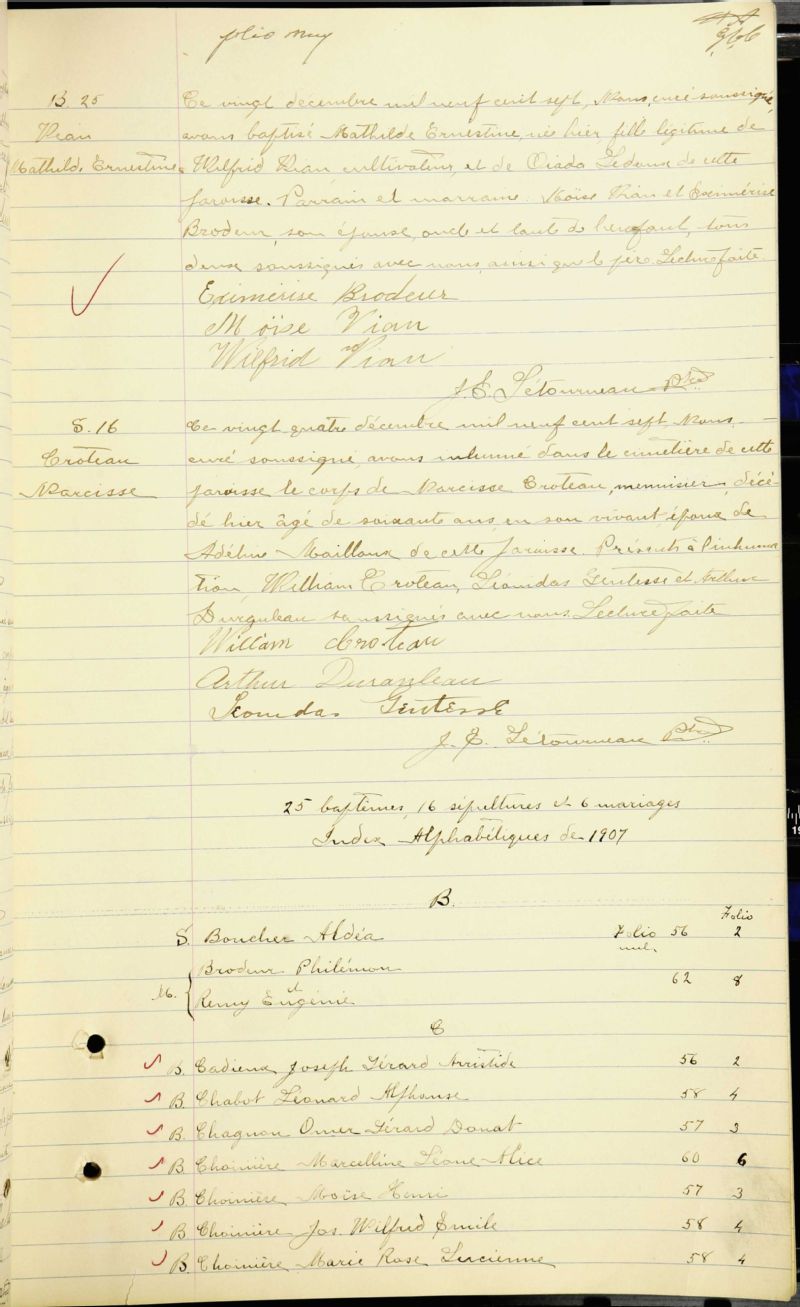 folio neuf
966
B. 25
Vian
Mathilde Ernestine
Ce vingt décembre mil neuf cent sept, Nous, curé soussigné,
avons baptisé Mathilde Ernestine, née hier, fille légitime de
Wilfrid Vian cultivateur, et de Ledoux de cette
paroisse. Parrain et marraine Moïse Vian et Exémérise
Brodeur, son épouse, oncle et tante de l'enfant, tous
deux soussignés avec nous, ainsi que le père. Lecture faite.
Eximérise Brodeur
Moïse Vian
Wilfrid Vian
J. E. Létourneau Ptre
S. 16
Croteau
Narcisse
Ce vingt quatre décembre mil neuf cent sept Nous,
curé soussigné, avons inhumé dans le cimetière de cette
paroisse le corps de Narcisse Croteau, menuisier, décé-
dé hier âgé de soixante ans, en son vivant époux de
Adéline Mailloux de cette paroisse. Présents à l'inhuma
tion, William Croteau, Léonidas Gentesse et Arthur
Duranleau soussignés avec nous. Lecture faite
William Croteau
Arthur Duranleau
Leonidas Gentesse
J. E. Létourneau Ptre
25 baptêmes, 16 sépultures et 6 mariages
Index Alphabétiques de 1907
B.
Folio
S. Boucher Aldéa Folio 56 2
M. Brodeur Philémon
Remy Eugénie 62 8
C
B. Cadieux Joseph Gérard Arristide 56 2
B. Chabot Léonard Alphonse 58 4
B. Chagnon Omer Gérard Donat 57 3
B. Choinière Marcelline Léone Alice 60 6
B. Choinière Moïse Henri 57 3
B. Choinière Jos. Wilfrid Emile 58 4
B. Choinière Marie Rose Lucienne 58 4